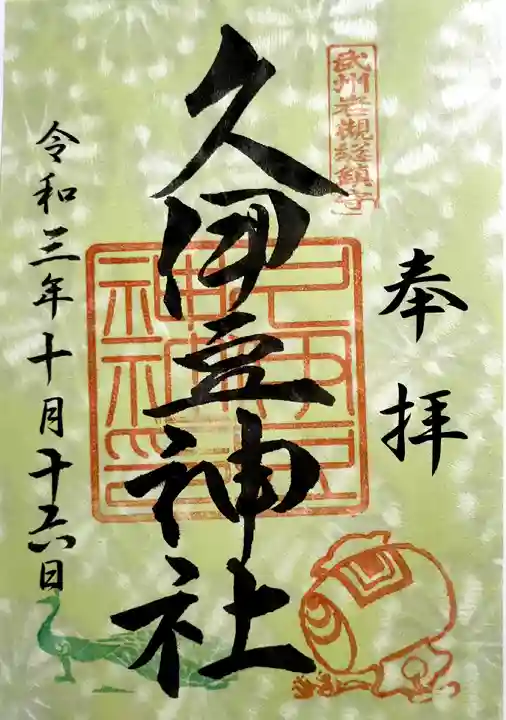 武州岩槻総鎮守
奉拝
久伊豆神社
令和三年十月十六日